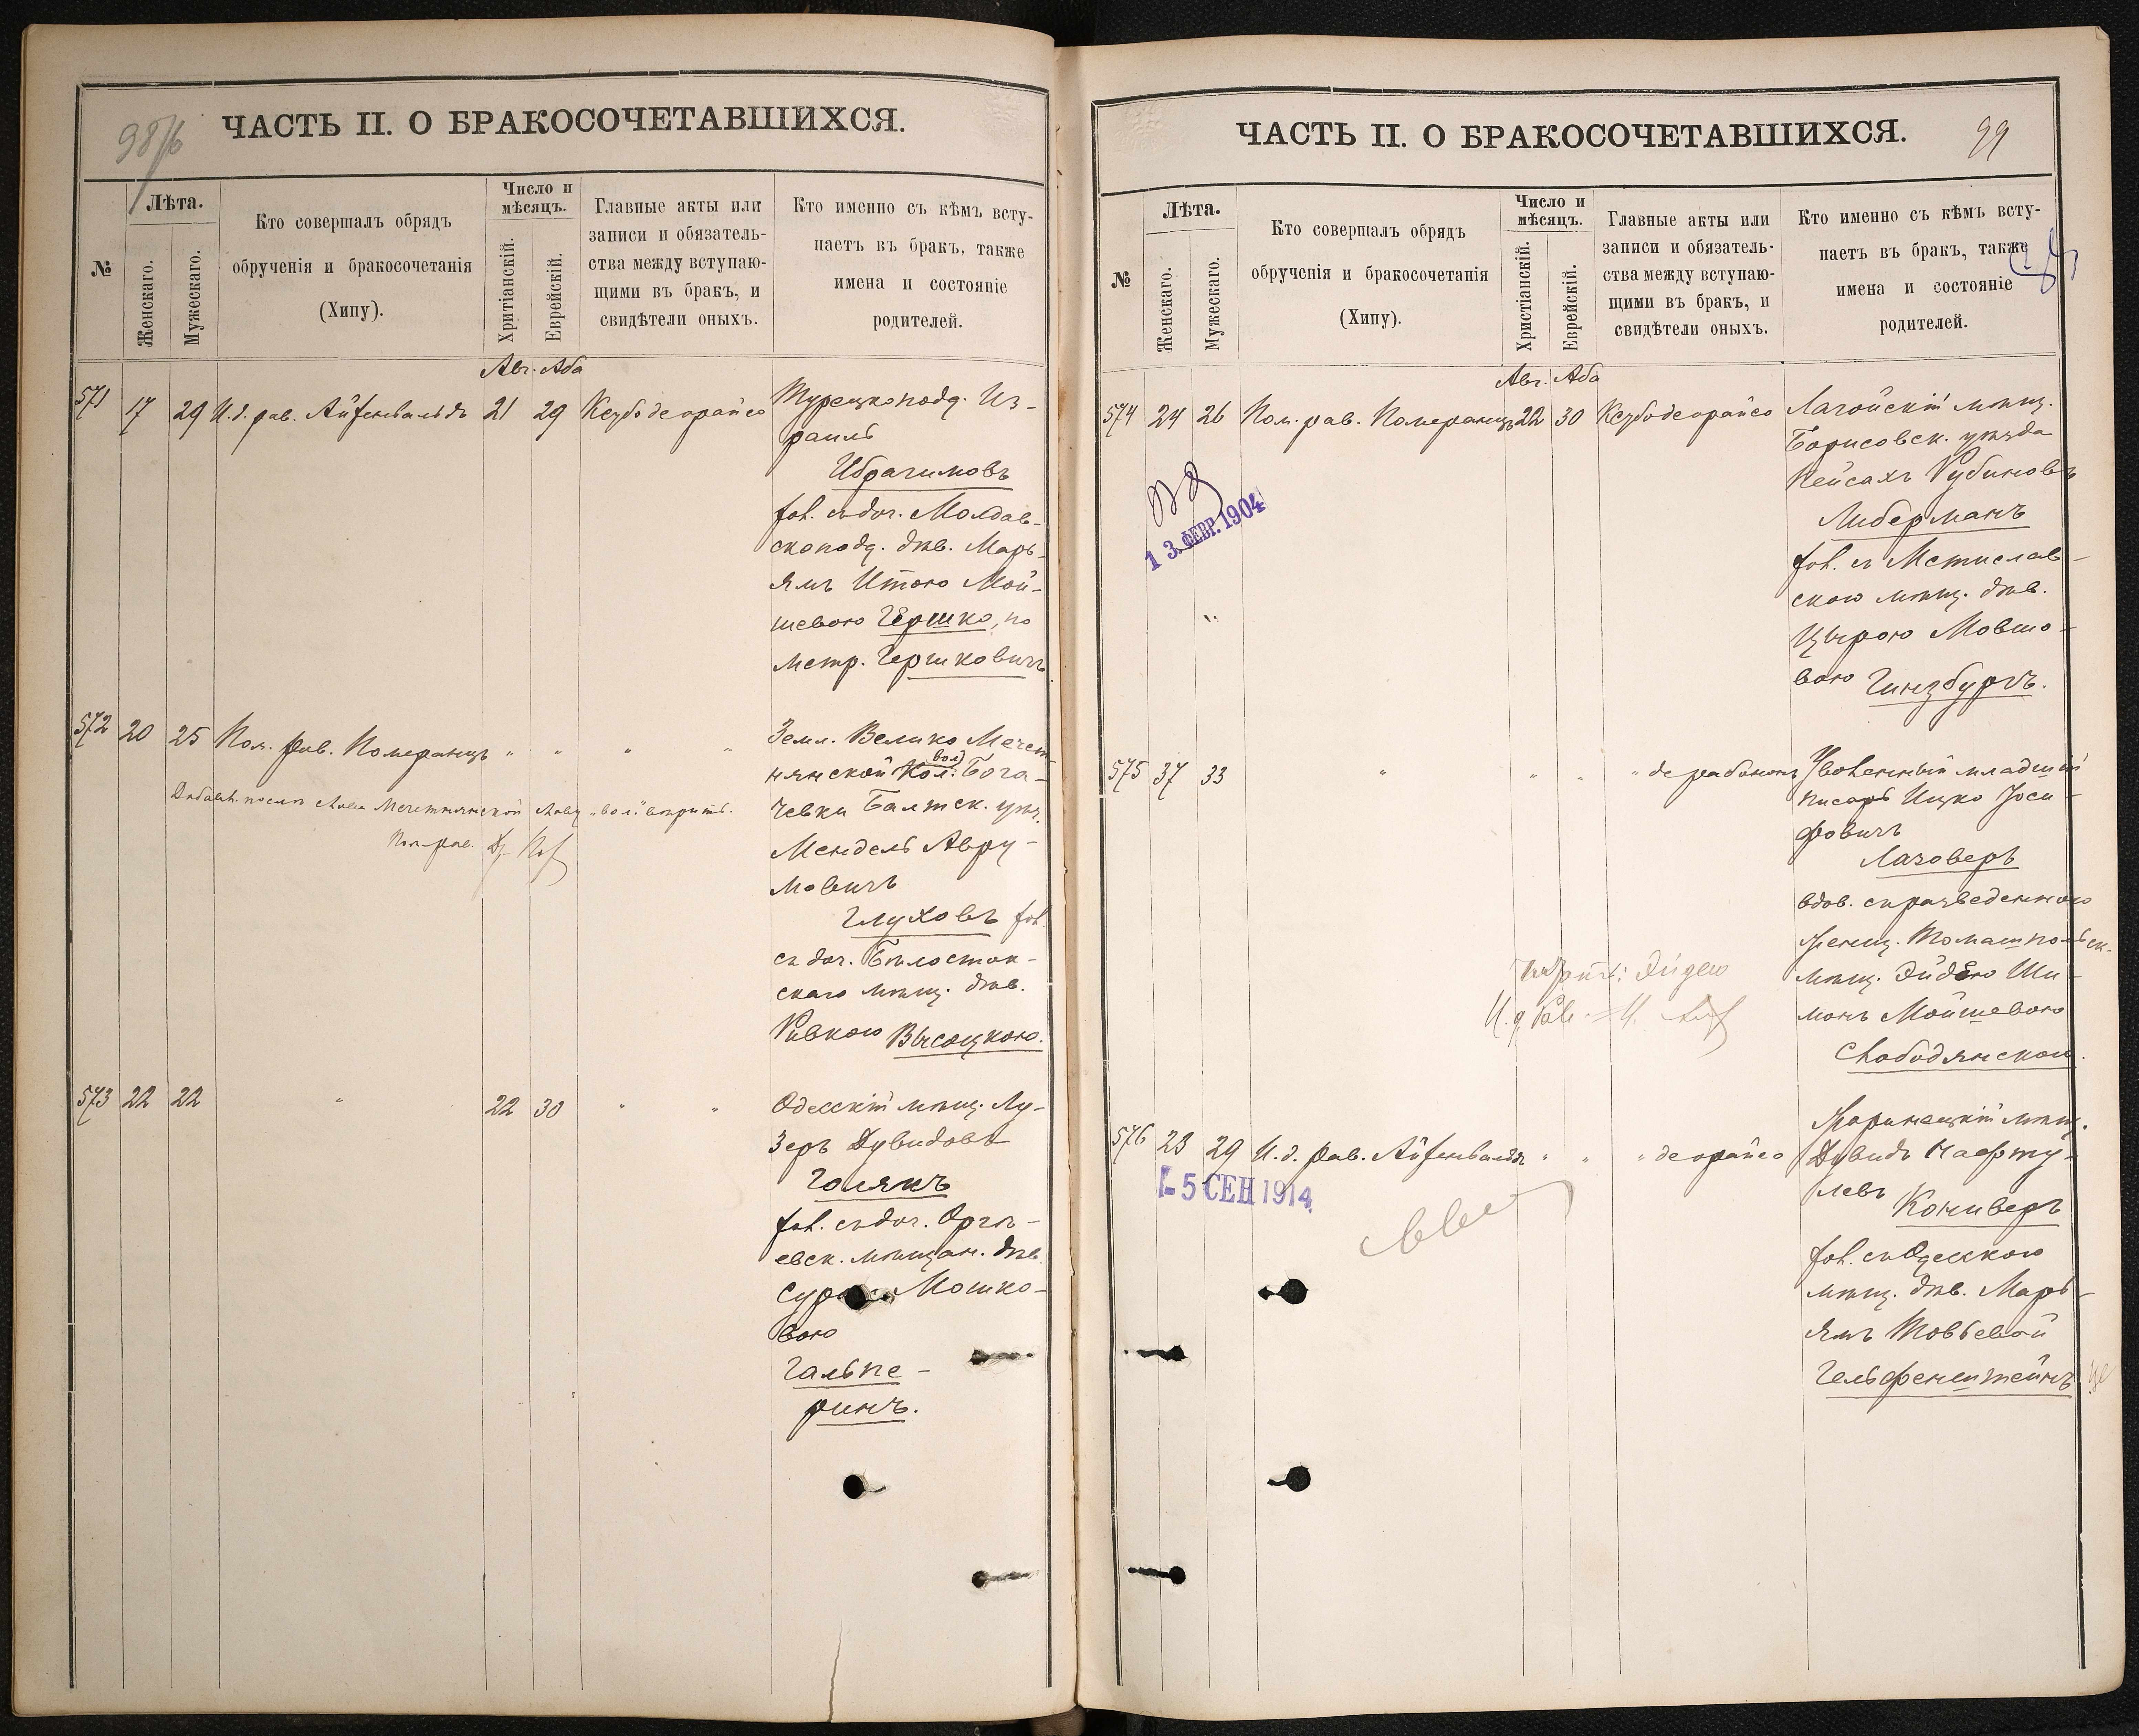 98/б
ЧАСТЬ II. О БРАКОСОЧЕТАВШИХСЯ.
№
Лѣта.
Женскаго.
Мужескаго.
Кто совершалъ обрядъ
обрученія и бракосочетанія
(Хипу).
Число и
мѣсяцъ.
Хритіанскій.
Еврейскій.
Главные акты или
записи и обязатель-
ства между вступаю-
щими въ бракъ, и
свидѣтели оныхъ.
Кто именно съ кѣмъ всту-
паетъ въ бракъ, также
имена и состояніе
родителей.
Авг. Аба
571 17 29 И.д. рав. Айзенвальдъ 21 29 Кезубо деорайсо
Турецкопод. Из-
раиль
Ибрагимовъ
хол. съ доч. Молдав-
скопод. дѣв. Марь-
ямъ Итою Мой-
шевою Гершко, по
метр. Гершковичъ.
572 20 25 Пом. рав. Померанцъ " " " "
Земл. Велико Мечет-
нянской вол. Бога-
чевки Балтск. уѣз.
Мендель Авру-
мовичъ
Глуховъ хол.
съ доч. Бѣлосток-
скаго мѣщ. дѣв.
Ривкою Высоцкою.
573 22 22 " 22 30 " "
Одесскій мѣщ. Лу-
зеръ Дувидовъ
Голякъ
хол. съ доч. Оргѣ-
евск. мѣщан. дѣв.
Мошко-
вою
Гальпе-
ринъ.
99
ЧАСТЬ II. О БРАКОСОЧЕТАВШИХСЯ.
№
Лѣта.
Женскаго.
Мужескаго.
Кто совершалъ обрядъ
обрученія и бракосочетанія
(Хипу).
Число и
мѣсяцъ.
Христіанскій.
Еврейскій.
Главные акты или
записи и обязатель-
ства между вступаю-
щими въ бракъ, и
свидѣтели оныхъ.
Кто именно съ кѣмъ всту-
паетъ въ бракъ, также
имена и состояніе
родителей.
Авг. Аба
574 24 26 Пом. рав. Померанцъ 22 30 Кезубо деорайсо
13 ФЕВР. 1904
Лагойскій мѣщ.
Борисовск. уѣзда
Пейсахъ Рубиновъ
Либерманъ
хол. съ Мстислав-
скою мѣщ. дѣв.
Цырою Мовшо-
вою Гинзбургъ.
575 37 33 " " " " дерабононъ
Уволенный младшій
писарь Ицко Іоси-
фовичъ
Лаговеръ
вдов. съ разведенною
женщ. Томашпольск.
мѣщ. Эйдею Ши-
монъ Мойшевою
Слободянскою.
576 23 29 И.д. рав. Айзенвальдъ " " " деорайсо
- 5 СЕН 1914
мѣщ.
Дувидъ
левъ
Конверъ
хол. съ Одесскою
мѣщ. дѣв. Марь-
ямъ Товбевой
Гельфенштейнъ